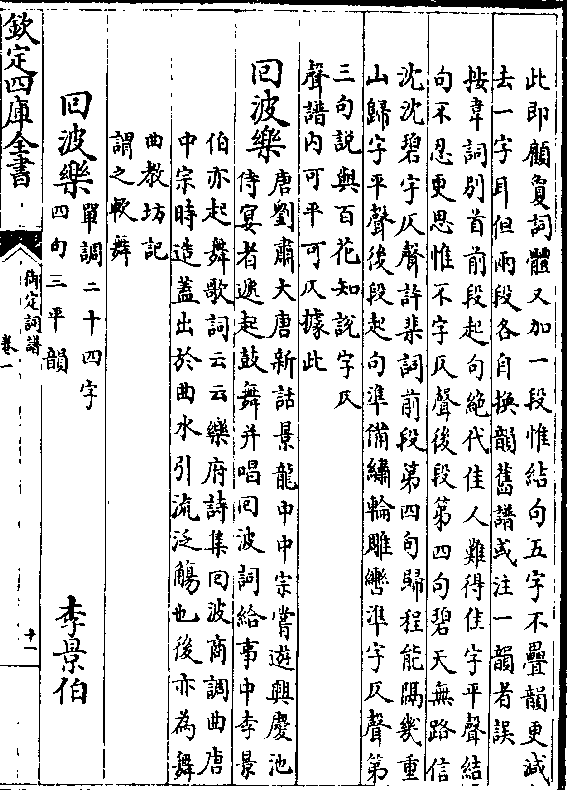 此即顧夐詞體又加一段惟結句五字不疊韻更減
去一字耳但兩段各自換韻舊譜或注一韻者誤
按韋詞別首前段起句絶代佳人難得佳字平聲結
句不忍更思惟不字仄聲後段第四句碧天無路信
沈沈碧字仄聲許棐詞前段第四句歸程能隔幾重
山歸字平聲後段起句準備繡輪雕轡準字仄聲第
三句說與百花知說字仄
聲譜內可平可仄據此
回波樂
唐劉肅大唐新話景龍中中宗嘗遊興慶池
侍宴者遞起鼓舞并唱回波詞給事中李景
伯亦起舞歌詞云云樂府詩集回波商調曲唐
中宗時造蓋出於曲水引流泛觴也後亦為舞
曲教坊記
謂之軟舞
回波樂
單調二十四字
四句三平韻
李景伯
欽定四庫全書
御定詞譜
卷一
十一